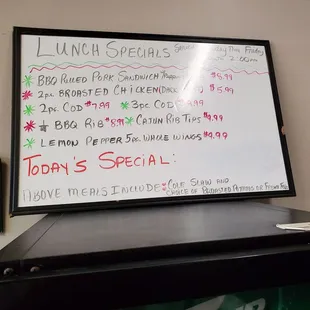 LUNCH SPECIALS
BBQ PULLED PORK SANDWICH $8.99
2pc. BROASTED CHICKEN $5.99
2pc. COD $7.99 3pc COD $9.99
BBQ RIB $8.99 CAJUN RIB TIPS $9.99
LEMON PEPPER 5pc. WHOLE WINGS $9.99
TODAY'S SPECIAL:
ABOVE MEALS INCLUDE: COLE SLAW AND
CHOICE OF BROASTED POTATOES OR FRENCH FRIES